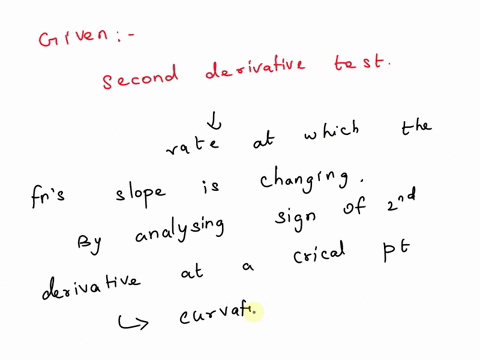 Given:-
second derivative test.
rate at which the
fn's slope is changing.
By analysing sign of 2nd
derivative at a crical pt
↳ curvat